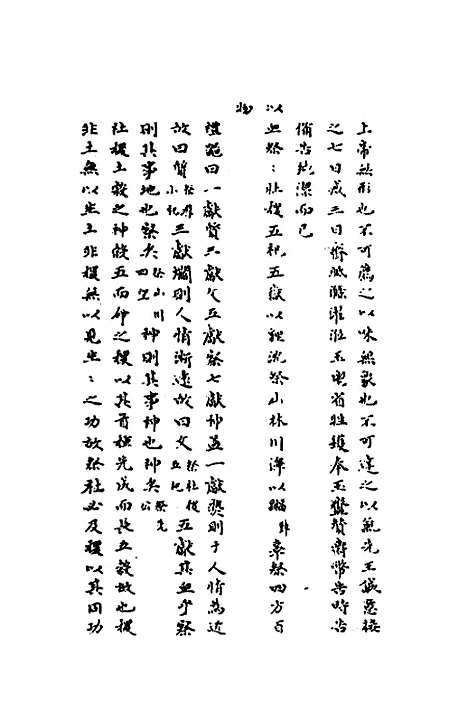 上帝無形也不可薦之以味無象也不可達之以氣先王誠意接
之七日戒三日齊祗滌濯涖玉鬯省牲鑊奉玉齍贊齊幣告時告
備告純潔而已
以血祭祭社稷五祀五嶽以貍沈祭山林川澤以疈辜祭四方百
物
禮器曰一獻質三獻文五獻察七獻神蓋一獻褻則于人情為近
故曰質祭群小祀三獻爓則人情漸遠故曰文祭社稷五祀五獻其血乎察
則其事地也察矣祭山川四望神則其事神也神矣祭先公
社稷土穀之神餒五而
稷以其首種先
而長五穀故也稷
非土無以生土非稷無以見生生之功故祭社必及稷以其同功